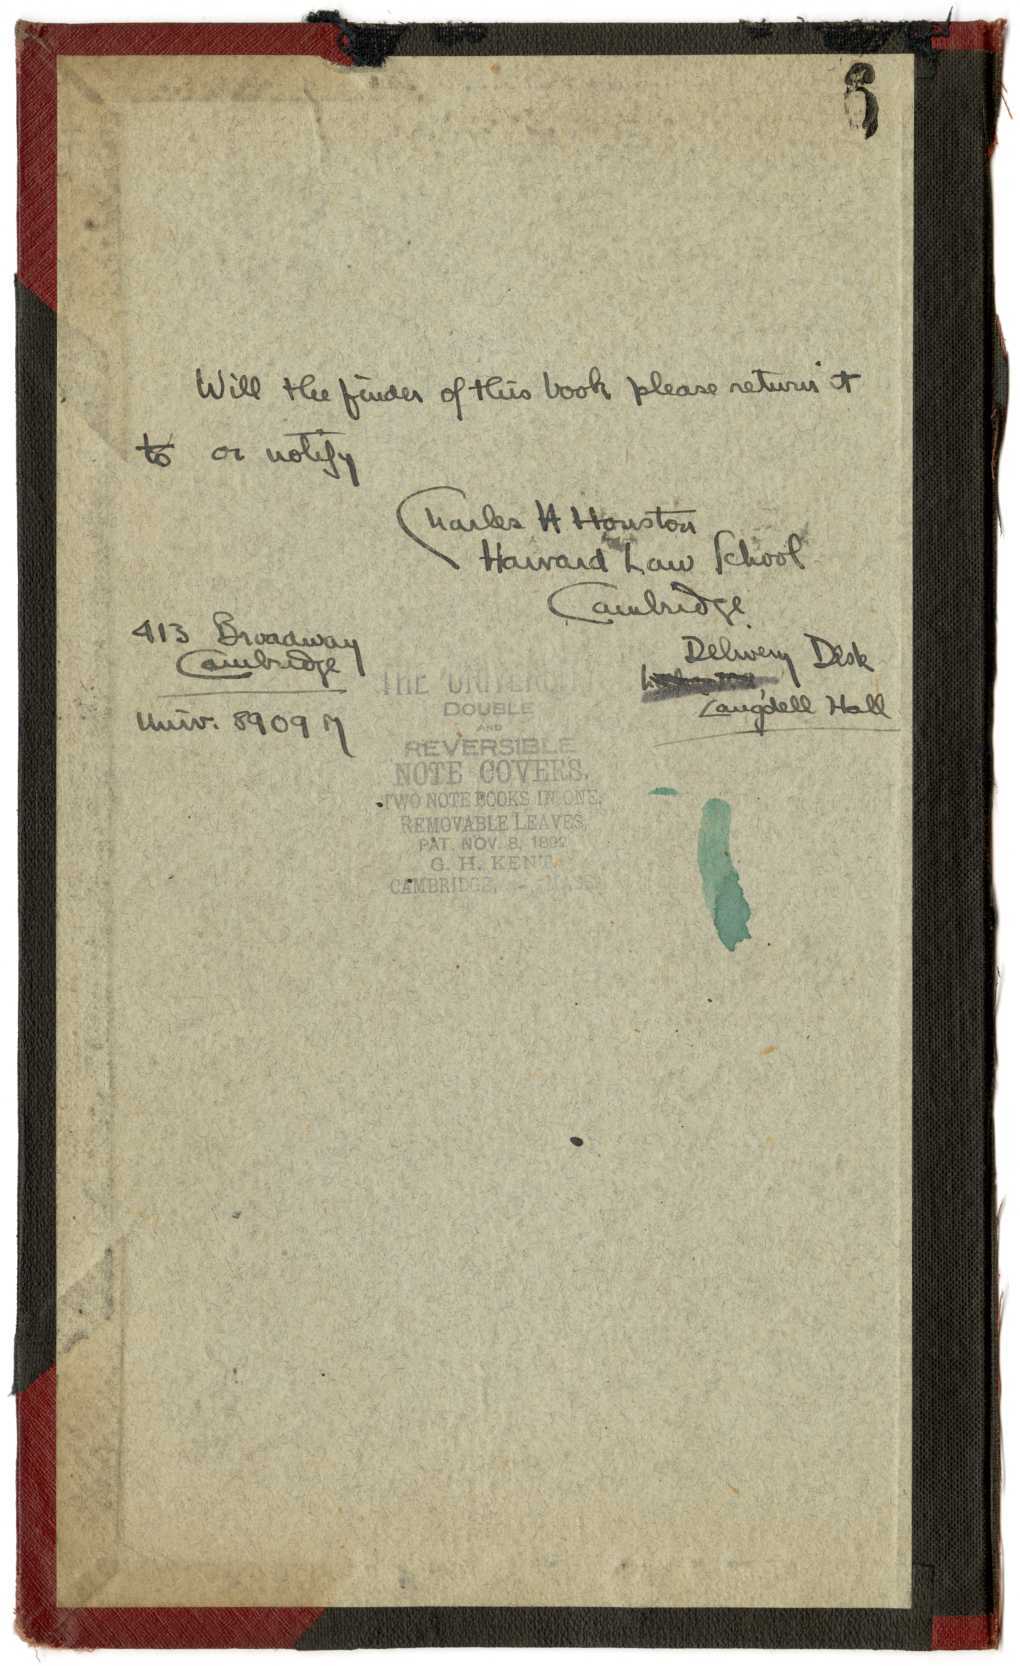 6
Will the finder of this book please return it
to or notify
Charles H Houston
Harvard Law School
Cambridge
413 Broadway
Cambridge
Univ. 8909 M
Delivery Desk
Langdell Hall
THE UNIVERSITY
DOUBLE
AND
REVERSIBLE
NOTE COVERS.
TWO NOTE BOOKS IN ONE.
REMOVABLE LEAVES,
PAT. NOV. 8, 1892
G. H. KENT.
CAMBRIDGE, - MASS.